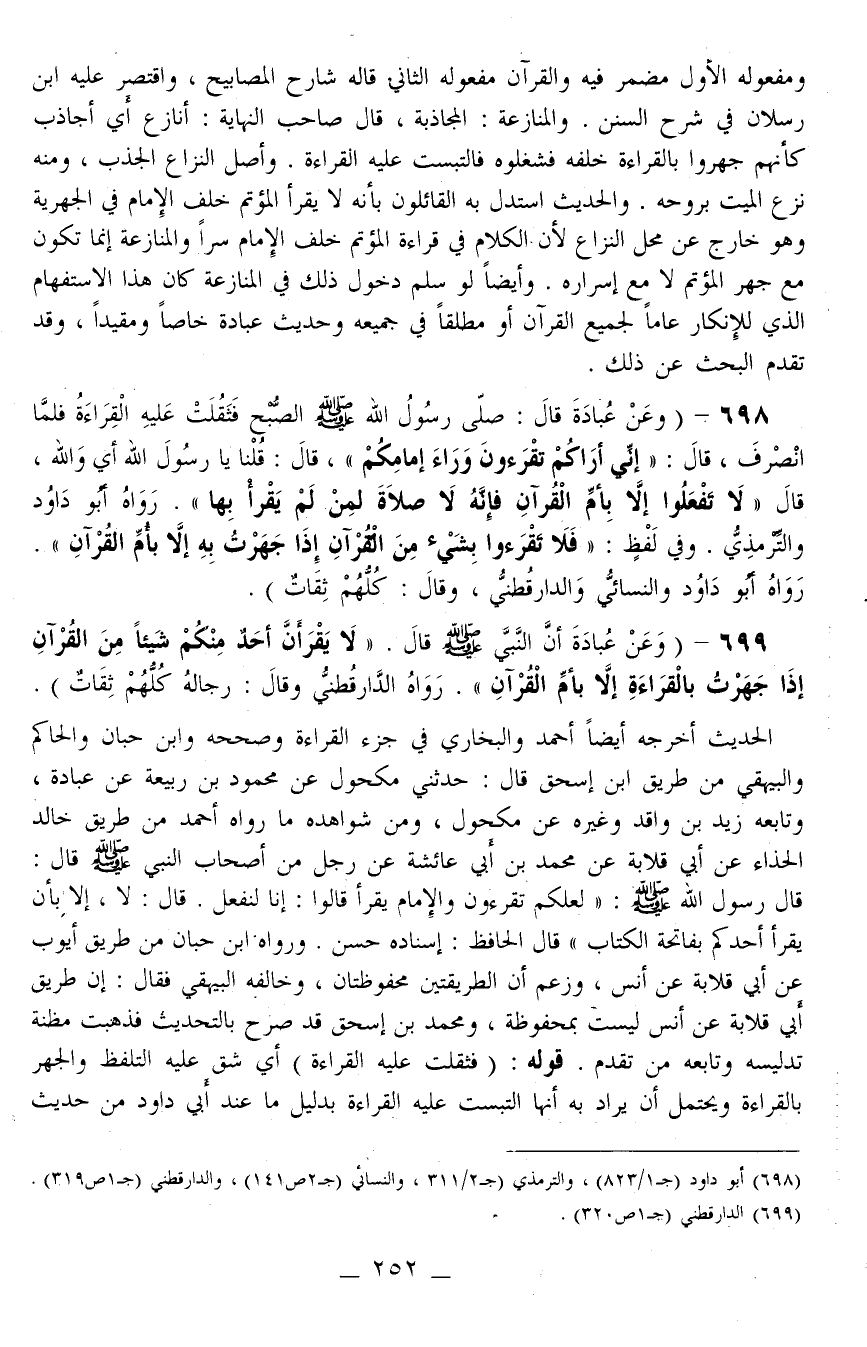 ومفعوله الأول مضمر فيه والقرآن مفعوله الثاني قاله شارح المصابيح ، واقتصر عليه ابن
رسلان في شرح السنن . والمنازعة : المجاذبة ، قال صاحب النهاية : أنازع أي أجاذب
كأنهم جهروا بالقراءة خلفه فشغلوه فالتبست عليه القراءة . وأصل النزاع الجذب ، ومنه
نزع الميت بروحه . والحديث استدل به القائلون بأنه لا يقرأ المؤتم خلف الإمام في الجهرية
وهو خارج عن محل النزاع لأن الكلام في قراءة المؤتم خلف الإمام سراً والمنازعة إنما تكون
مع جهر المؤتم لا مع إسراره . وأيضاً لو سلم دخول ذلك في المنازعة كان هذا الاستفهام
الذي للإنكار عاماً لجميع القرآن أو مطلقاً في جميعه وحديث عبادة خاصاً ومقيداً ، وقد
تقدم البحث عن ذلك .
٦٩٨ – ( وعَنْ عُبادَةَ قالَ : صلّى رسُولُ الله ﷺ الصُّبْح فَثَقُلَتْ عَليهِ الْقِرَاءَةُ فلمَّا
انْصْرفَ ، قالَ : « إنّي أرَاكُمْ تقْرَءونَ وَرَاءَ إمامِكُمْ » ، قالَ : قُلْنا يا رسُولَ الله أي وَالله ،
قالَ « لَا تَفْعَلُوا إلَّا بأمِّ الْقُرآنِ فإنَّهُ لَا صلاَةَ لمِنْ لَمْ يَقْرأْ بِها » . رَوَاهُ أبُو دَاوُد
والتِّرمذِيُّ . وفي لَفْظٍ : « فَلَا تَقْرَءوا بِشَيْءٍ مِنَ الْقُرْآنِ إذَا جَهَرْتُ بِهِ إلَّا بأُمِّ القُرْآنِ » .
رَوَاهُ أبُو دَاوُد والنسائيُّ وَالدارقُطنيُّ ، وقالَ : كُلُّهُمْ ثِقَاتٌ ) .
٦٩٩ – ( وَعَنْ عُبادَةَ أنَّ النَّبيَّ ﷺ قالَ . « لَا يَقْرَأَنَّ أحَدٌ مِنْكُمْ شَيئاً مِنَ القُرْآنِ
إذَا جَهَرْتُ بالْقرَاءَةِ إلَّا بأمِّ الْقُرْآنِ » . رَوَاهُ الدَّارقُطنيُّ وقالَ : رجالهُ كُلُّهُمْ ثِقَاتٌ ) .
الحديث أخرجه أيضاً أحمد والبخاري في جزء القراءة وصححه وابن حبان والحاكم
والبيهقي من طريق ابن إسحق قال : حدثني مكحول عن محمود بن ربيعة عن عبادة ،
وتابعه زيد بن واقد وغيره عن مكحول ، ومن شواهده ما رواه أحمد من طريق خالد
الحذاء عن أبي قلابة عن محمد بن أبي عائشة عن رجل من أصحاب النبي ﷺ قال :
قال رسول الله ﷺ : « لعلكم تقرءون والإمام يقرأ قالوا : إنا لنفعل . قال : لا ، إلا بأن
يقرأ أحدكم بفاتحة الكتاب » قال الحافظ : إسناده حسن . ورواه ابن حبان من طريق أيوب
عن أبي قلابة عن أنس ، وزعم أن الطريقتين محفوظتان ، وخالفه البيهقي فقال : إن طريق
أبي قلابة عن أنس ليست بمحفوظة ، ومحمد بن إسحق قد صرح بالتحديث فذهبت مظنة
تدليسه وتابعه من تقدم . قوله : ( فثقلت عليه القراءة ) أي شق عليه التلفظ والجهر
بالقراءة ويحتمل أن يراد به أنها التبست عليه القراءة بدليل ما عند أبي داود من حديث
(٦٩٨) أبو داود (جـ٨٢٣/١) ، والترمذي (جـ٣١١/٢ ، والنسائي (جـ٢ص١٤١) ، والدارقطني (جـ١ص٣١٩) .
(٦٩٩) الدارقطني (جـ١ص٣٢٠) .
— ٢٥٢ —